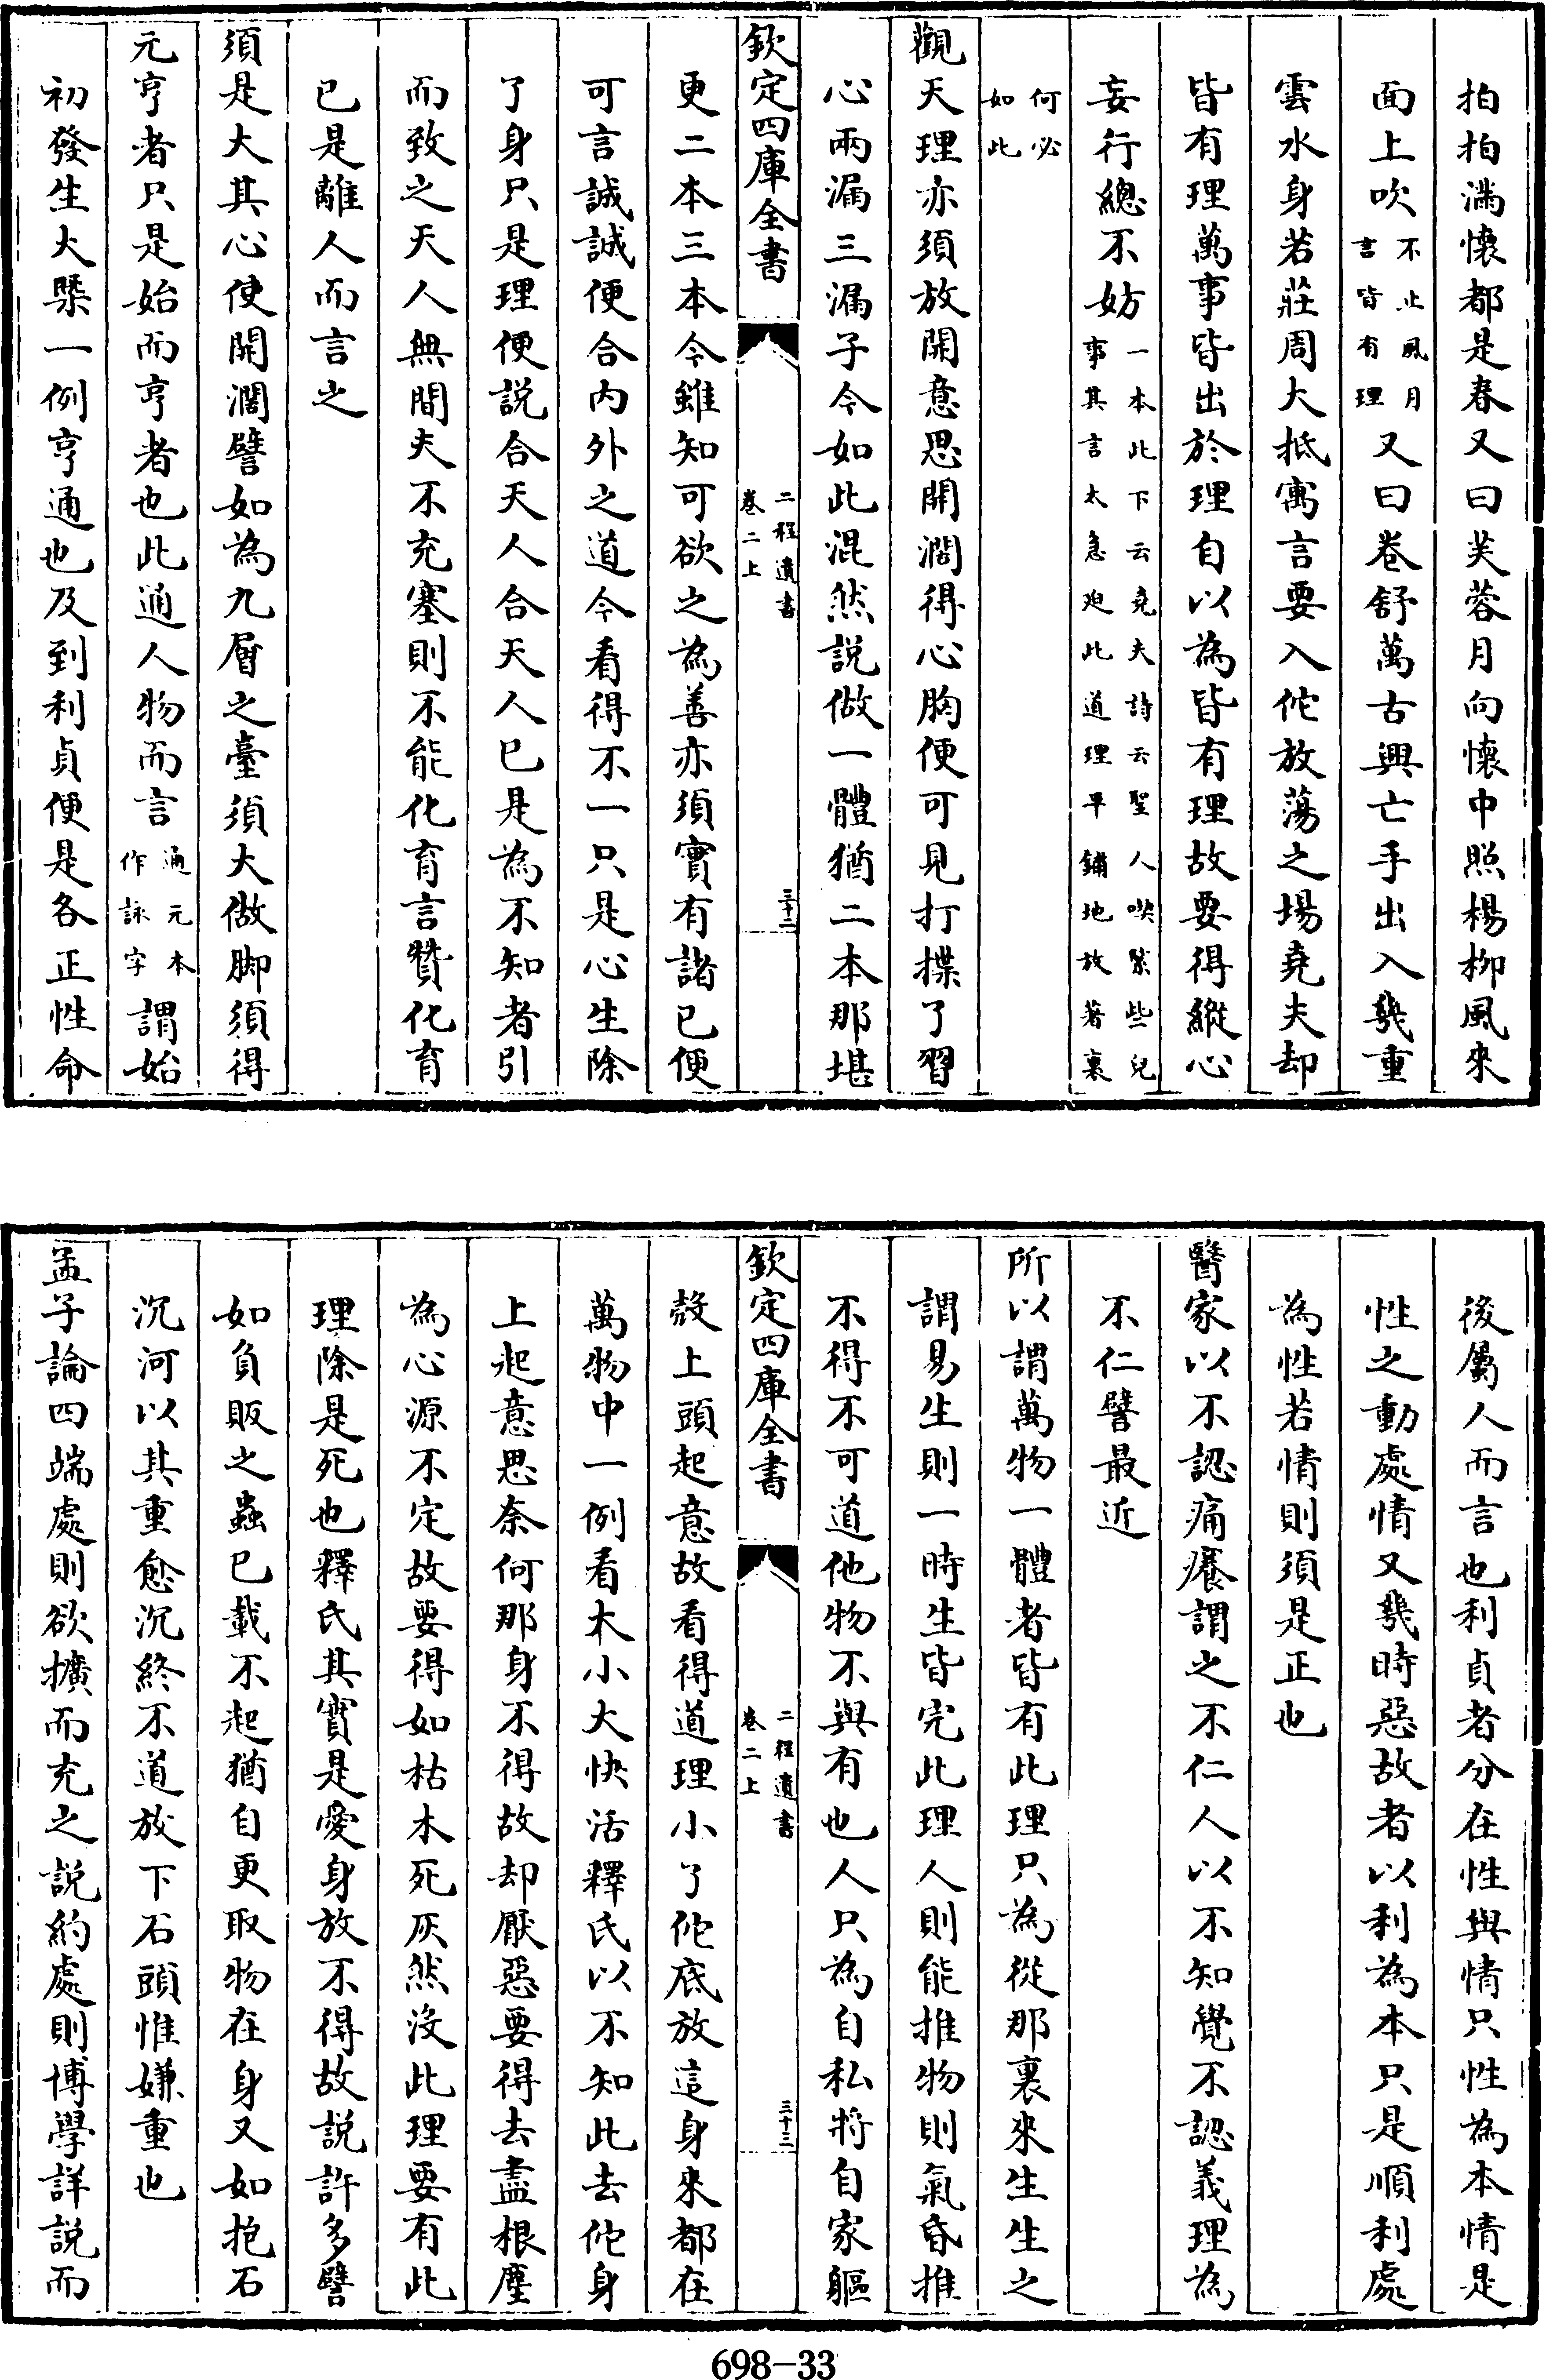 拍拍滿懷都是春又曰芙蓉月向懷中照楊柳風來
面上吹不止風月言皆有理又曰卷舒萬古興亡手出入幾重
雲水身若莊周大抵寓言要入佗放蕩之場堯夫却
皆有理萬事皆出於理自以為皆有理故要得縱心
妄行總不妨一本此下云堯夫詩云聖人喫緊些兒事其言太急迫此道理平鋪地放著裏
何必如此
觀天理亦須放開意思開濶得心胸便可見打揲了習
心兩漏三漏子今如此混然説做一體猶二本那堪
欽定四庫全書
二程遺書
卷二上
三十二
更二本三本今雖知可欲之為善亦須實有諸已便
可言誠誠便合内外之道今看得不一只是心生除
了身只是理便説合天人合天人已是為不知者引
而致之天人無間夫不充塞則不能化育言贊化育
已是離人而言之
須是大其心使開濶譬如為九層之臺須大做脚須得
元亨者只是始而亨者也此通人物而言通元本作詠字謂始
初發生大槩一例亨通也及到利貞便是各正性命
後屬人而言也利貞者分在性與情只性為本情是
性之動處情又幾時惡故者以利為本只是順利處
為性若情則須是正也
醫家以不認痛癢謂之不仁人以不知覺不認義理為
不仁譬最近
所以謂萬物一體者皆有此理只為從那裏來生生之
謂易生則一時生皆完此理人則能推物則氣昏推
不得不可道他物不與有也人只為自私將自家軀
欽定四庫全書
二程遺書
卷二上
三十三
殼上頭起意故看得道理小了佗底放這身來都在
萬物中一例看大小大快活釋氏以不知此去佗身
上起意思奈何那身不得故却厭惡要得去盡根塵
為心源不定故要得如枯木死灰然没此理要有此
理除是死也釋氏其實是愛身放不得故説許多譬
如負販之蟲已載不起猶自更取物在身又如抱石
沉河以其重愈沉終不道放下石頭惟嫌重也
孟子論四端處則欲擴而充之説約處則博學詳説而
698-33